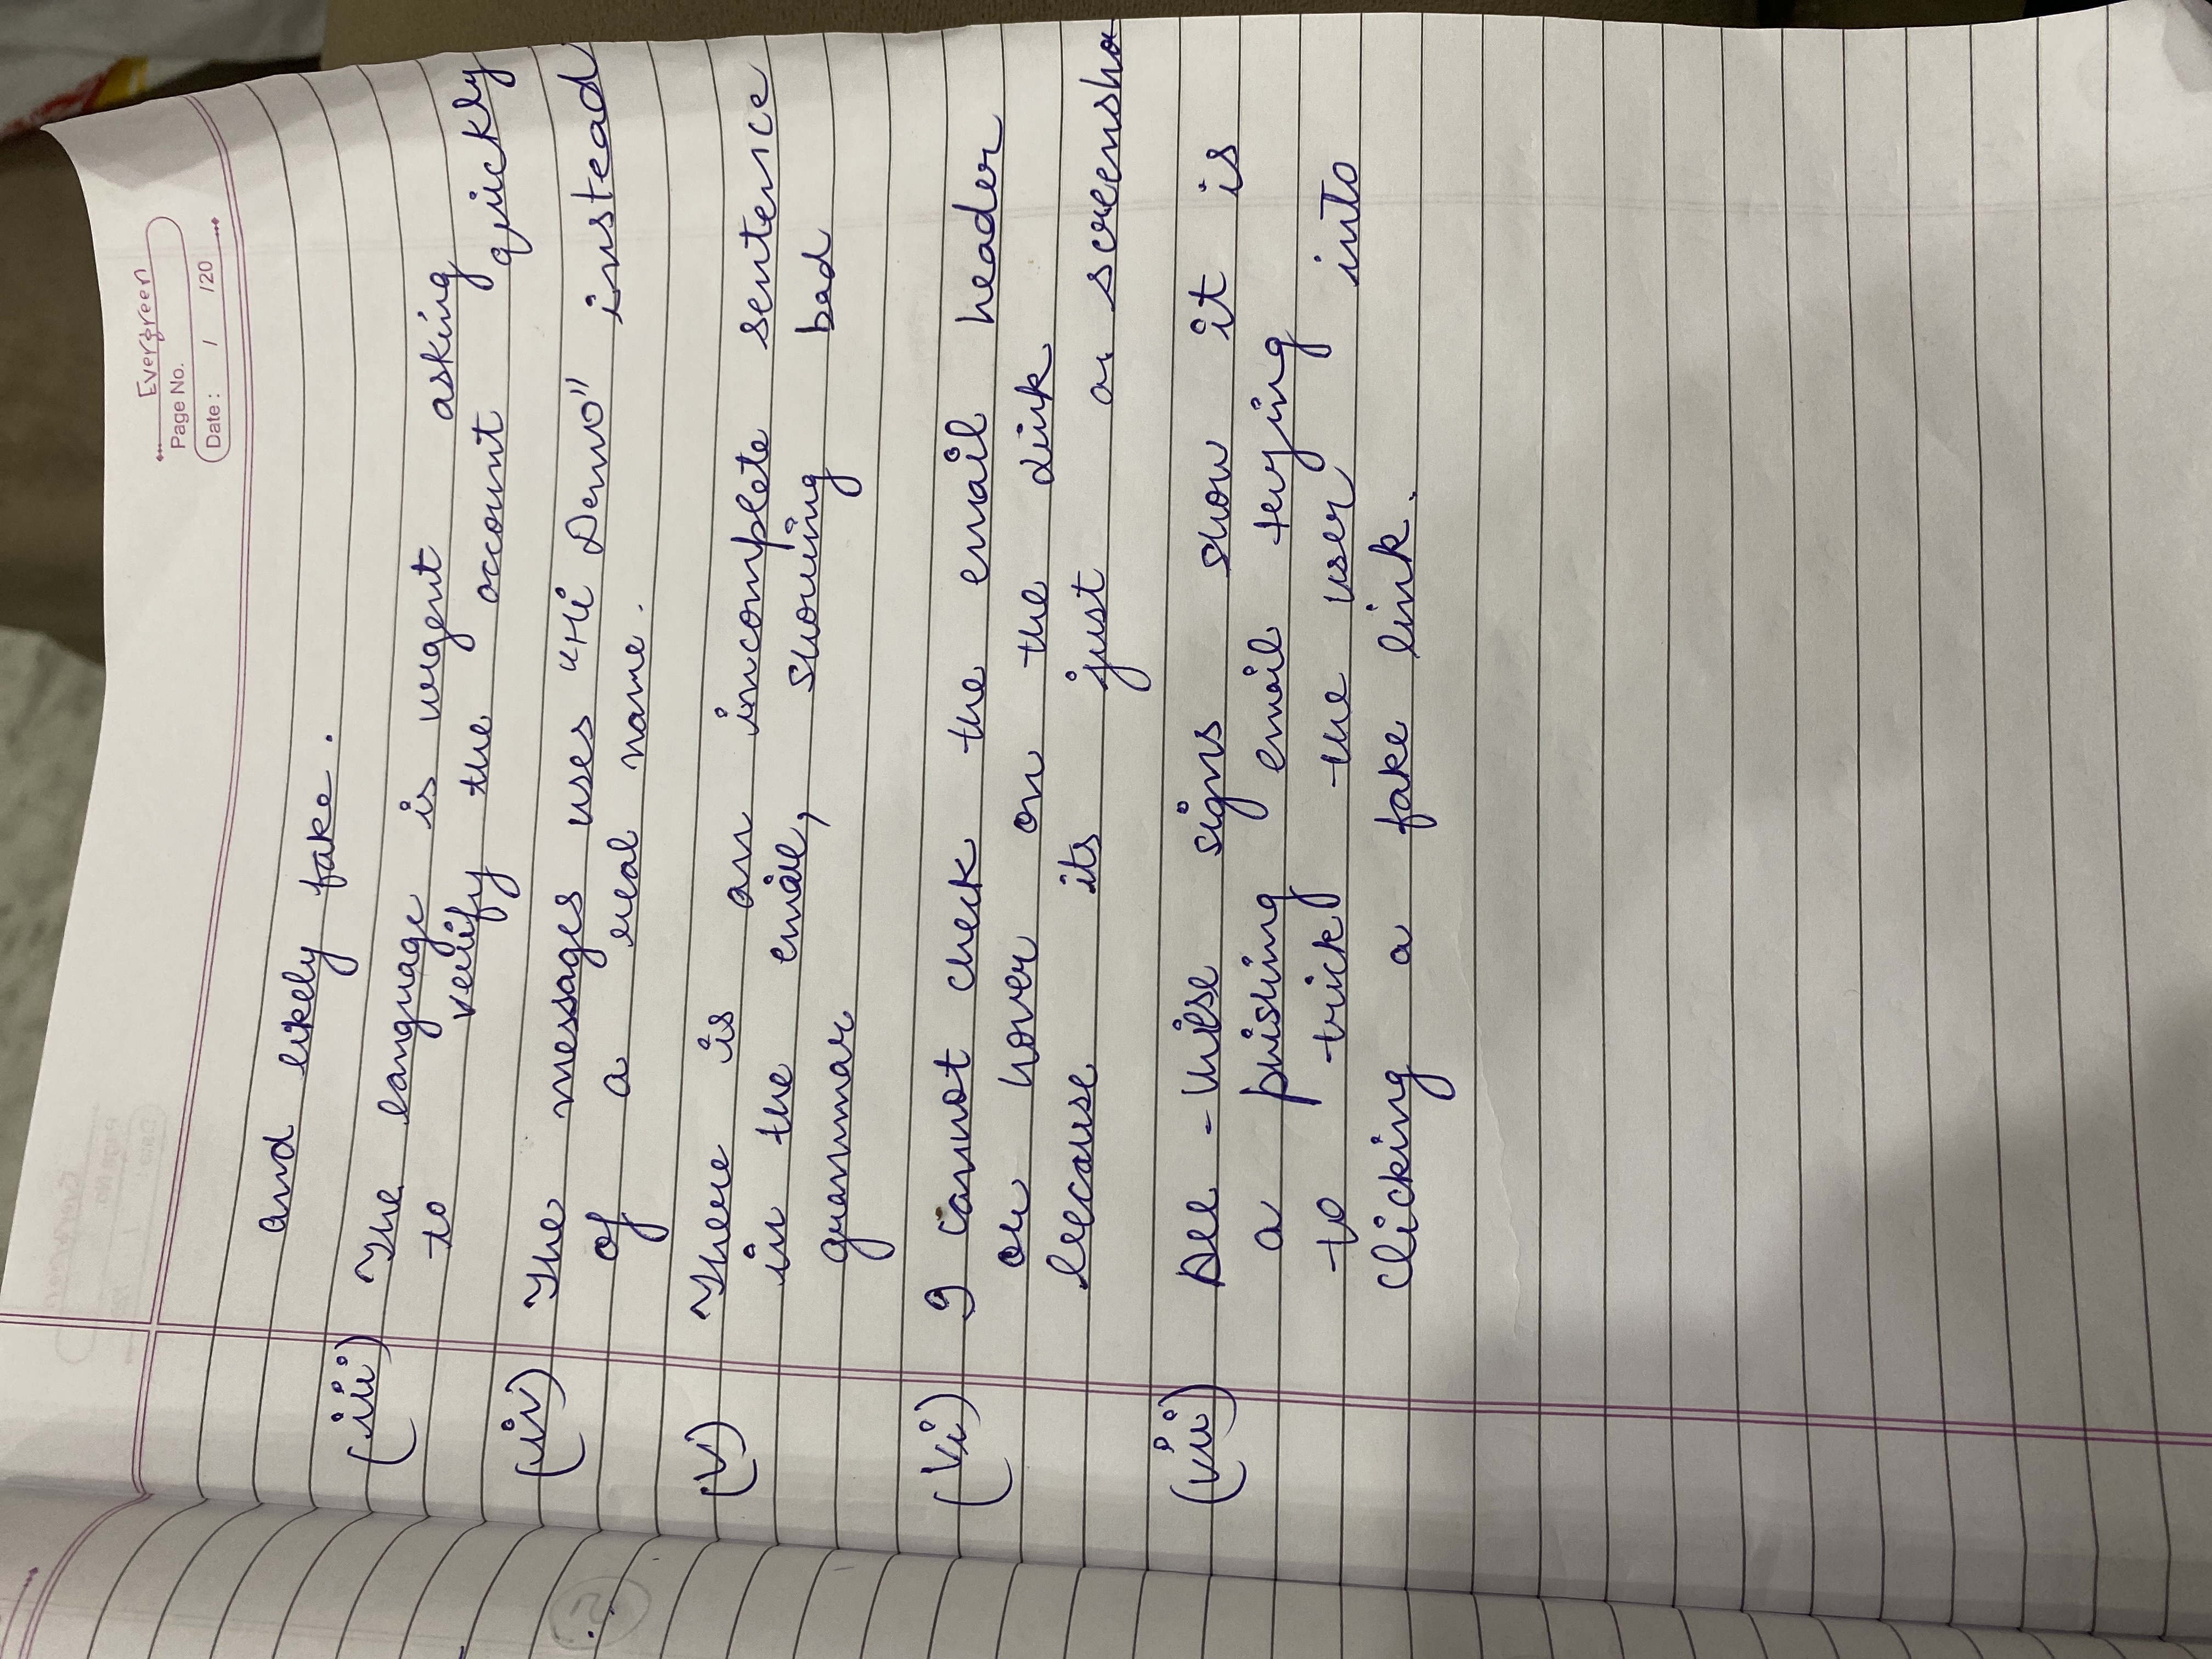 Evergreen
Page No.
Date : / /20
and likely fake.
(iii) The language is urgent asking
to verify the account quickly
(iv) The messages uses "Hi Demo" instead
of a real name.
(v) There is an incomplete sentence
in the email, showing bad
grammar
(vi) I cannot check the email header
or hover on the link
because its just a screensho
(vii) All these signs show it is
a phishing email trying
to trick the user into
clicking a fake link.